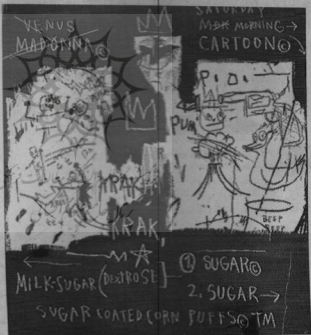 VENUS
MADONNA©
SATURDAY
MORNING→
CARTOON©
KRAK
KRAK
BEEP
MILK-SUGAR (DEXTROSE)
① SUGAR©
2. SUGAR→
SUGAR COATED CORN PUFFS© TM